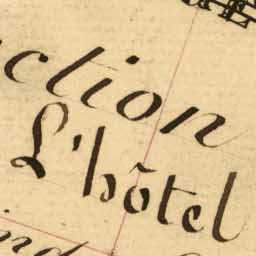 ction
L'hôtel
ind